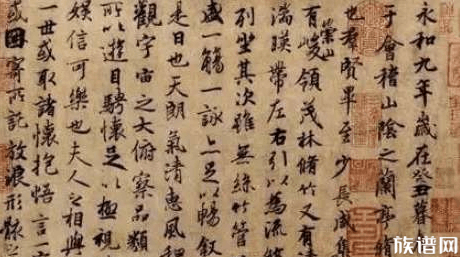 永和九年歲在癸丑暮
于會稽山陰之蘭亭脩
也群賢畢至少長咸集
有崇山峻領茂林脩竹又有清
湍暎帶左右引以為流
列坐其次雖無絲竹管
盛一觴一詠亦足以暢叙
是日也天朗氣清惠風和
觀宇宙之大俯察品類
所以遊目騁懷足以極視
娛信可樂也夫人之相與
一世或取諸懷抱悟言一
或因寄所託放浪形骸之
族谱网